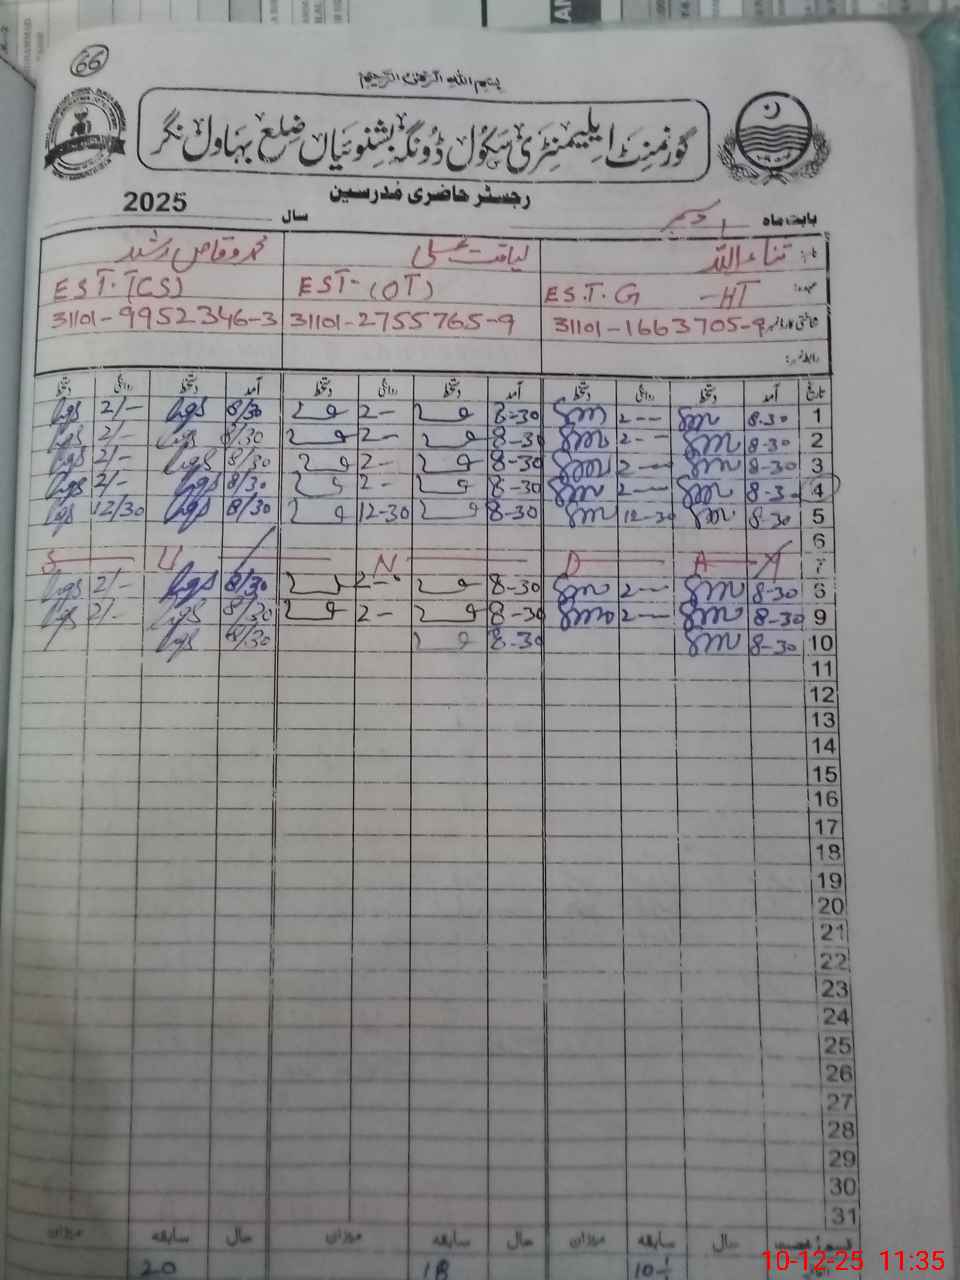 66
بسم اللہ الرحمن الرحیم
گورنمنٹ ایلیمنٹری سکول ڈونگہ بشنوئیاں ضلع بہاول نگر
رجسٹر حاضری مدرسین
بابت ماہ دسمبر سال 2025
نام: ثناء اللہ لیاقت علی محمد وقاص رشید
عہدہ: EST.G -HT EST-(OT) EST.T(CS)
شناختی کارڈ نمبر 31101-1663705-9 31101-2755765-9 31101-9952346-3
رابطہ نمبر:
تاریخ آمد دستخط روانگی دستخط آمد دستخط روانگی دستخط آمد دستخط روانگی دستخط
1 8-30 2-- 8-30 2- 8/30 2/-
2 8-30 2-- 8-30 2- 8/30 2/-
3 8-30 2-- 8-30 2- 8/30 2/-
4 8-30 2-- 8-30 2- 8/30 2/-
5 8-30 12-30 8-30 12-30 8/30 12/30
6
7 S U N D A Y
8 8-30 2-- 8-30 2-- 8/30 2/-
9 8-30 2-- 8-30 2- 8/30 2/-
10 8-30 8-30 8/30
11
12
13
14
15
16
17
18
19
20
21
22
23
24
25
26
27
28
29
30
31
حال سابقہ میزان حال سابقہ میزان حال سابقہ میزان
18 20
10-12-25 11:35